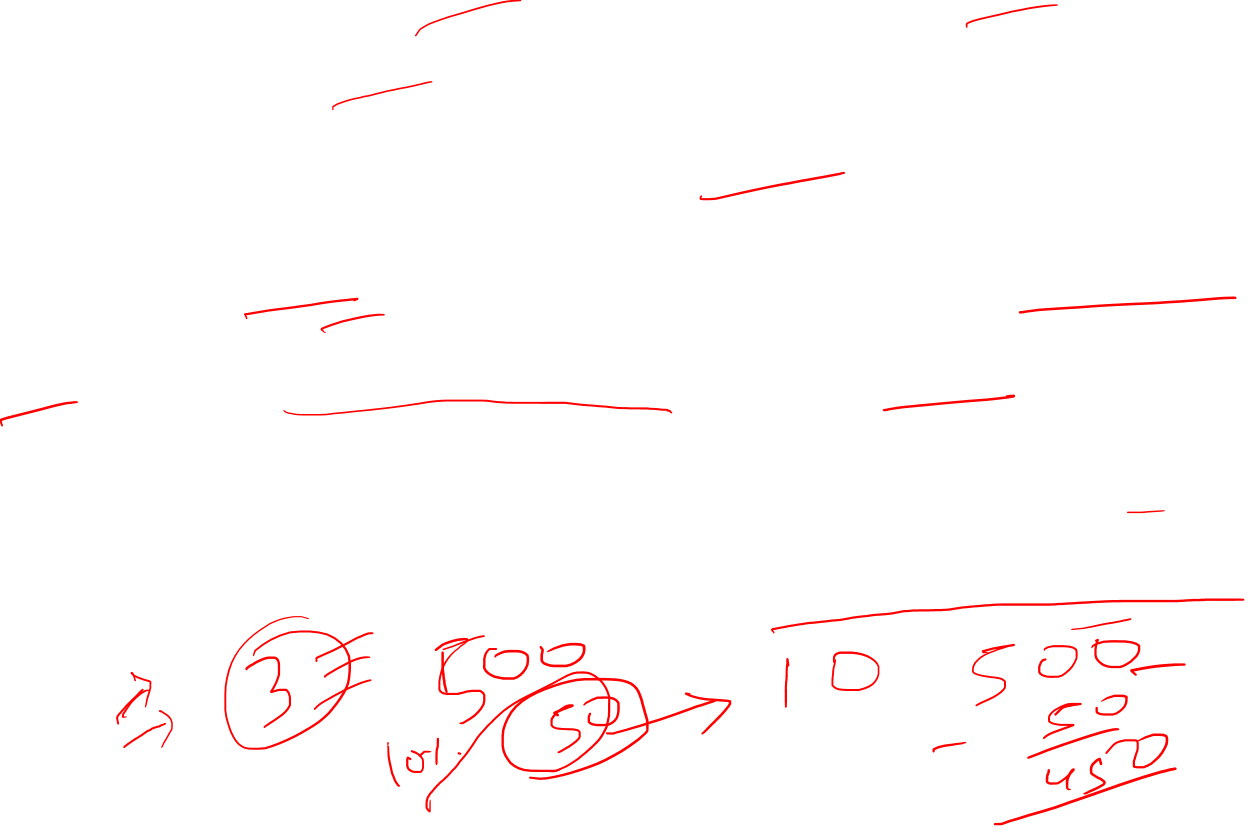 3 500 10 500
10% 50 → - 50
450